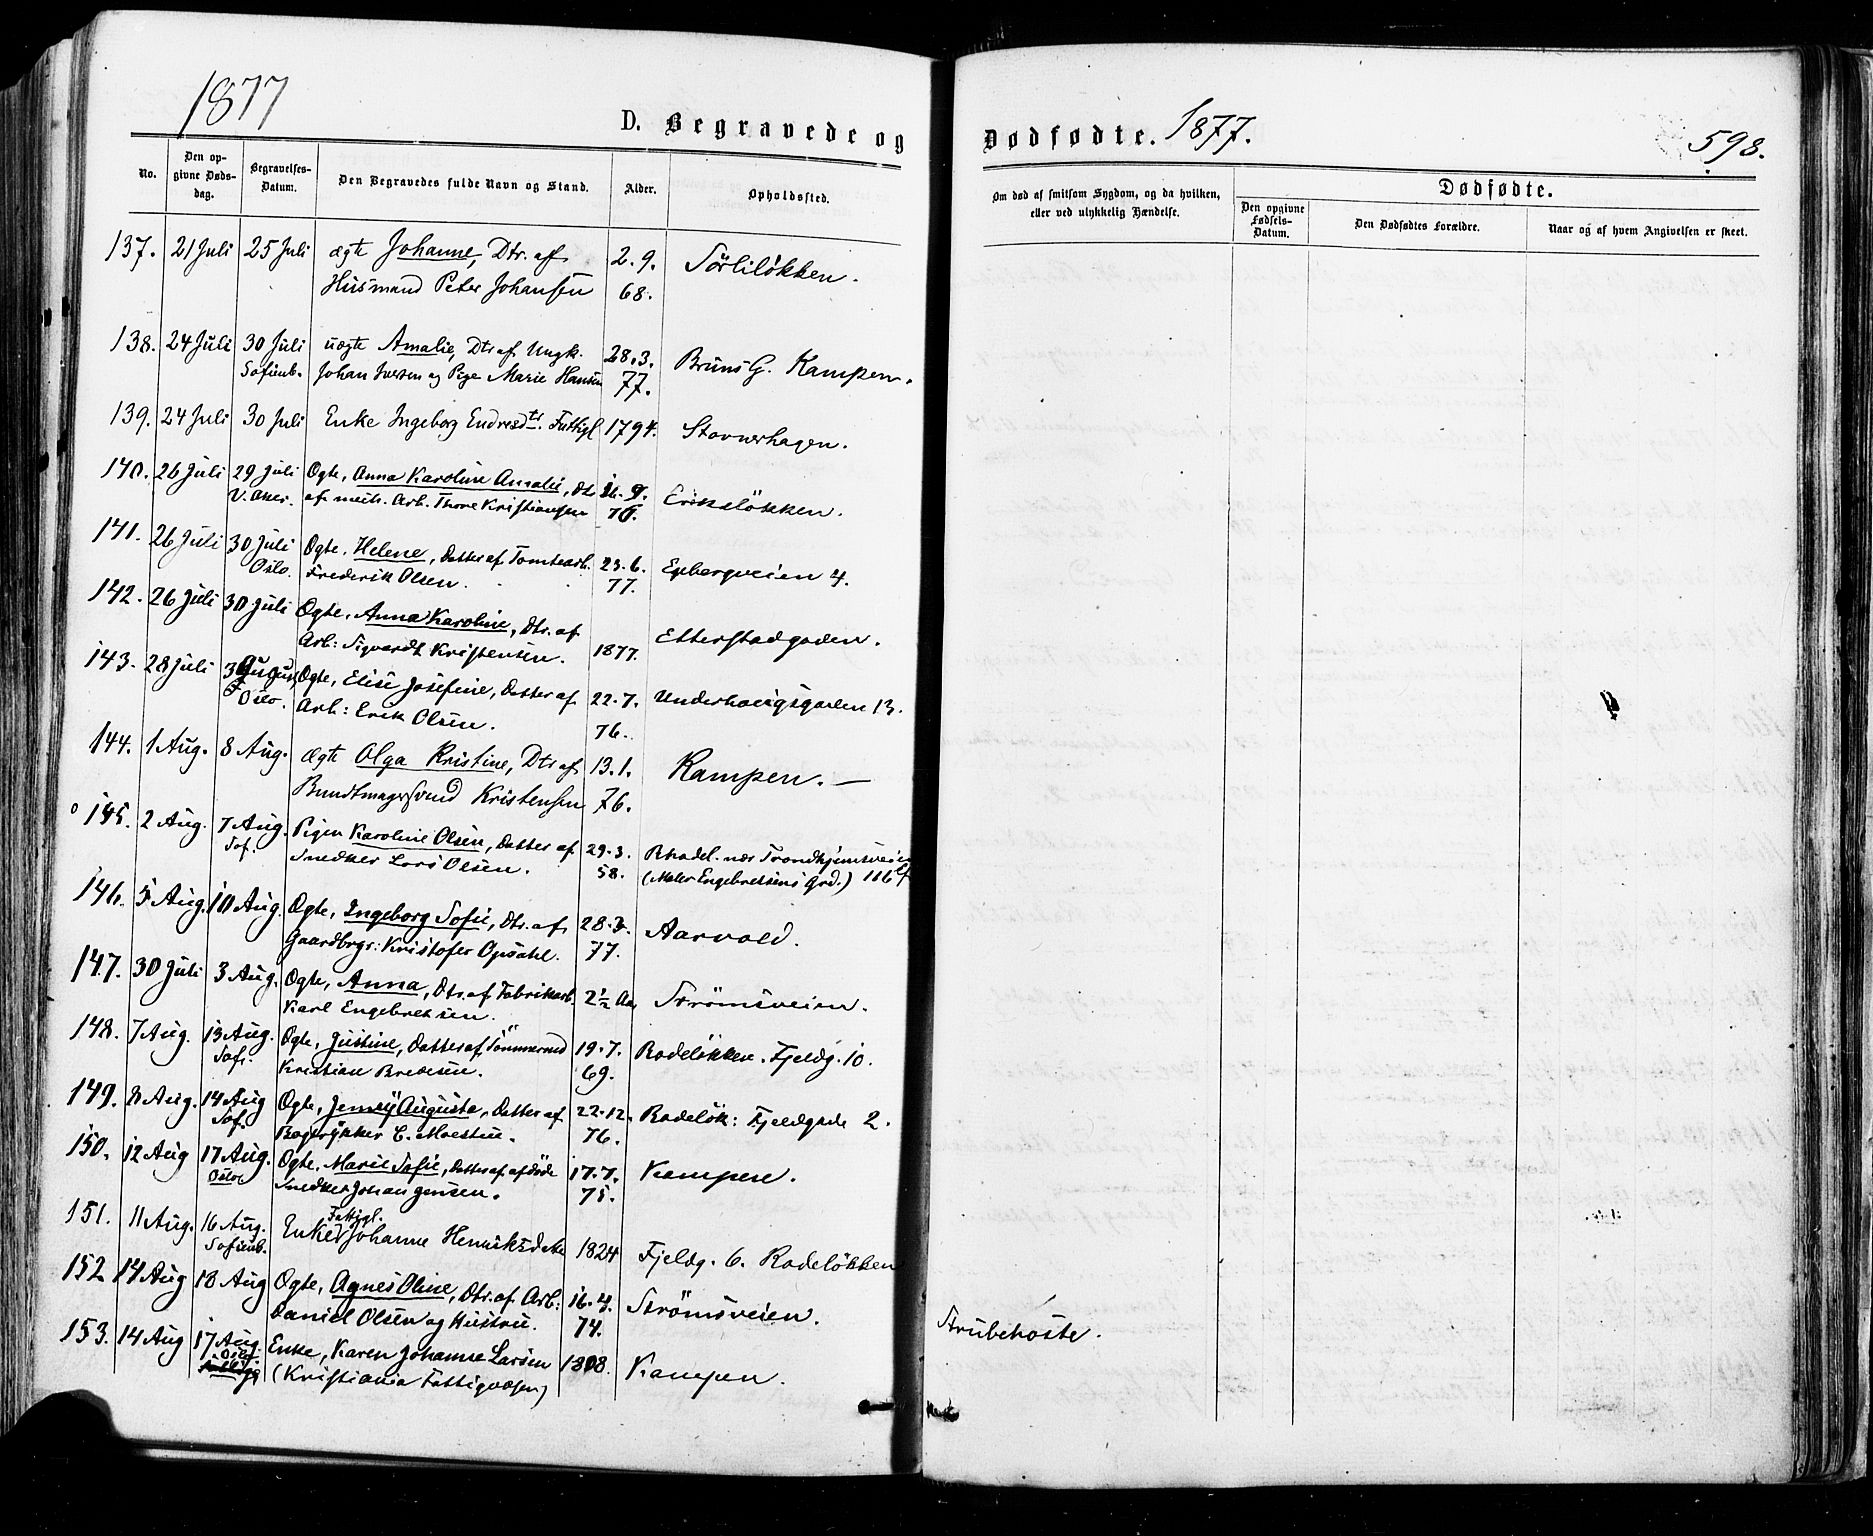 1877
D. Begravede og
Dødfødte. 1877.
598.
No.
Den opgivne Døds-dag.
Begravelses-Datum.
Den Begravedes fulde Navn og Stand.
Alder.
Opholdssted.
Om død af smitsom Sygdom, og da hvilken,
eller ved ulykkelig Hændelse.
Dødfødte.
Den opgivne Fødsels-Datum.
Den Dødfødtes Forældre.
Naar og af hvem Angivelsen er skeet.
137. 21 Juli 25 Juli ægte Johanne, Dtr. af 2.9. Sörliløkken.
Husmand Peter Johansen 68.
138. 24 Juli 30 Juli uægte Amalie, Dtr af Ungk. 28.3. Bruns G. Kampen.
Sofienb. Johan Iversen og Pige Marie Hansen 77.
139. 24 Juli 30 Juli Enke Ingeborg Endresdtr. Fattigl 1794. Stovnerhagen.
140. 26 Juli 29 Juli Ægte, Anna Karoline Amalie, Dtr Eriksløkken.
V. Aker. af meth. Arb. Thore Kristiansen
141. 26 Juli 30 Juli Ægte, Helene, Datter af Tomtearb. 23.6. Egebergveien 4.
Oslo. Frederik Olsen. 77.
142. 26 Juli 30 Juli Ægte, Anna Karoline, Dtr. af Etterstadgaden.
Arb: Sigvardt Kristensen. 1877.
143. 28 Juli Ægte, Elise Josefine, Datter af 22.7. Underhougsgaden 13.
Oslo. Arb: Erik Olsen. 76.
144. 1 Aug. 8 Aug. ægte Olga Kristine, Dtr af 13.1. Kampen. —
Bundtmagersvend Kristensen 76.
145. 2 Aug. 7 Aug. Pigen Karoline Olsen, Datter af 29.3. Rhodel. nær Trondhjemsveien
Sof. Snedker Lars Olsen. 58. (Maler Engebretsens Grd.) 116
146. 5 Aug. 10 Aug. Ægte, Ingeborg Sofie, Dtr. af 28.3. Aarvold.
Gaardbrgr: Kristofer Opsahl. 77.
147. 30 Juli 3 Aug. Ægte, Anna, Dtr. af Fabrikarb. 2½ Aar Strømsveien.
Karl Engebretsen.
148. 7 Aug. 13 Aug. Ægte, Justine, Datter af Tømmermd 19.7. Rodeløkken. Fjeldg. 10.
Sof. Kristian Bredesen. 69.
149. 8 Aug. 14 Aug Ægte, Jenny Augusta, Datter af 22.12. Rodeløk: Fjeldgade 2.
Sof. Bogtrykker C. Moestue. 76.
150. 12 Aug 17 Aug. Ægte, Marie Sofie, Datter af afdøde 17.7. Kampen.
Oslo Snedker Johan Jensen. 75.
151. 11 Aug. 16 Aug. Fattigl.
Sofienb. Enke Johanne Henriksdatter 1824 Fjeldg. 6. Rodeløkken
152 14 Aug 18 Aug Ægte, Agnes Oline, Dtr. af Arb: 16.4. Strømsveien. Strubehoste.
Daniel Olsen og Hustru. 74.
153. 14 Aug 17 Aug. Enke, Karen Johanne Larsen 1808. Kampen.
Oslo (Kristiania Fattigvæsen)